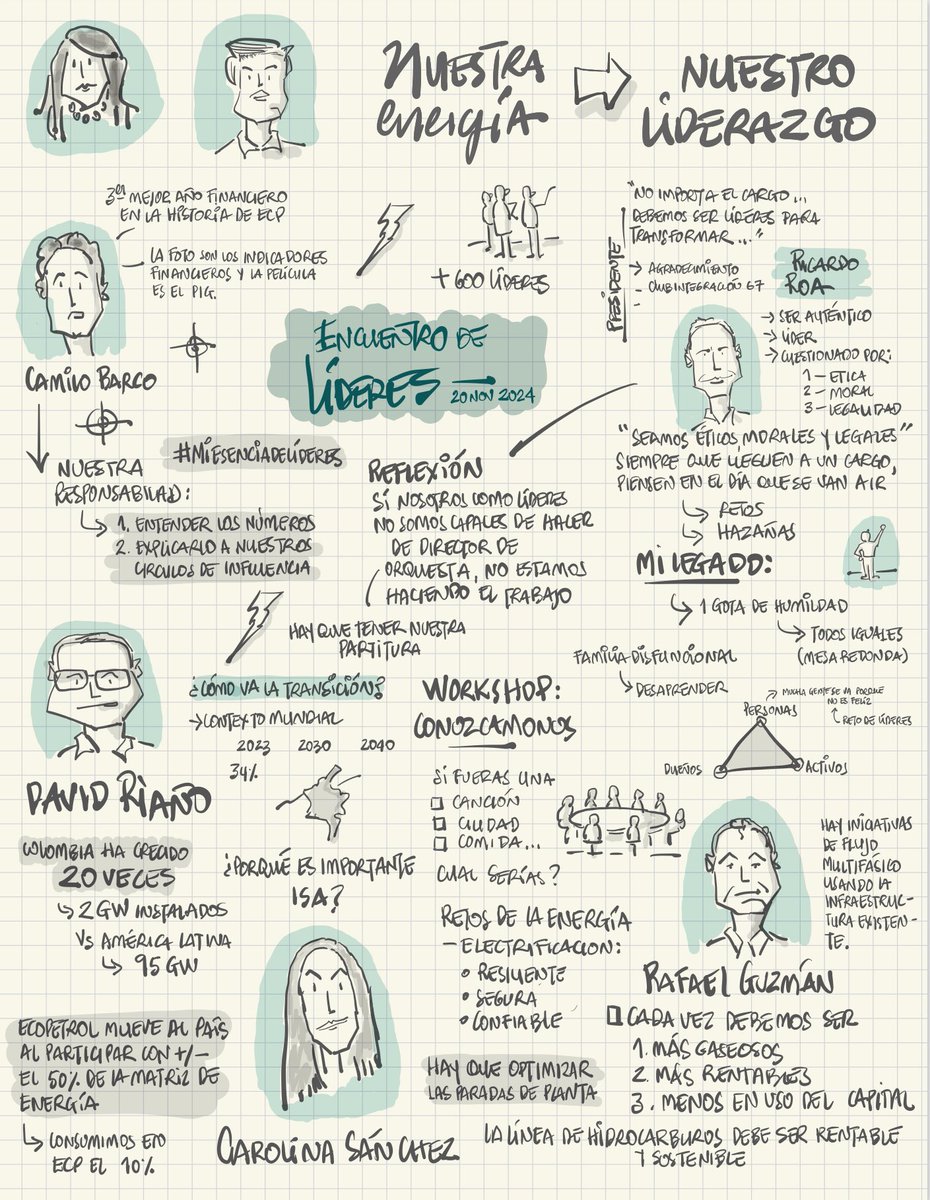 NUESTRA
energía
NUESTRO
LIDERAZGO
3er MEJOR AÑO FINANCIERO
EN LA HISTORIA DE ECP
LA FOTO SON LOS INDICADORES
FINANCIEROS Y LA PELÍCULA
ES EL PIG.
CAMILO BARCO
NUESTRA
RESPONSABILIDAD:
1. ENTENDER LOS NÚMEROS
2. EXPLICARLO A NUESTROS
CÍRCULOS DE INFLUENCIA
+600 LÍDERES
ENCUENTRO DE
LÍDERES
20 NOV 2024
#MIESENCIADELÍDERES
"NO IMPORTA EL CARGO...
DEBEMOS SER LÍDERES PARA
TRANSFORMAR..."
PRESIDENTE
AGRADECIMIENTO
CLUB INTEGRACIÓN 67
RICARDO
ROA
SER AUTÉNTICO
LÍDER
CUESTIONADO POR:
1 - ETICA
2 - MORAL
3 - LEGALIDAD
"SEAMOS ÉTICOS MORALES Y LEGALES"
SIEMPRE QUE LLEGUEN A UN CARGO,
PIENSEN EN EL DÍA QUE SE VAN A IR
RETOS
HAZAÑAS
REFLEXIÓN
SÍ NOSOTROS COMO LÍDERES
NO SOMOS CAPALES DE HACER
DE DIRECTOR DE
ORQUESTA, NO ESTAMOS
HACIENDO EL TRABAJO
HAY QUE TENER NUESTRA
PARTITURA
MI LEGADO:
1 GOTA DE HUMILDAD
TODOS IGUALES
(MESA REDONDA)
FAMILIA DISFUNCIONAL
DESAPRENDER
MUCHA GENTE SE VA PORQUE
NO ES FELIZ
RETO DE LÍDERES
PERSONAS
DUEÑOS
ACTIVOS
DAVID RIAÑO
¿CÓMO VA LA TRANSICIÓN?
CONTEXTO MUNDIAL
2023 2030 2040
34%
COLOMBIA HA CRECIDO
20 VECES
2 GW INSTALADOS
VS AMÉRICA LATINA
95 GW
¿PORQUÉ ES IMPORTANTE
ISA?
ECOPETROL MUEVE AL PAÍS
AL PARTICIPAR CON +/-
EL 50% DE LA MATRIZ DE
ENERGÍA
CONSUMIMOS EN
ECP EL 10%
CAROLINA SÁNCHEZ
WORKSHOP:
CONOZCAMONOS
¿SI FUERAS UNA
CANCIÓN
CIUDAD
COMIDA...
CUAL SERÍAS?
RETOS DE LA ENERGÍA
- ELECTRIFICACION:
• RESILIENTE
• SEGURA
• CONFIABLE
HAY QUE OPTIMIZAR
LAS PARADAS DE PLANTA
HAY INICIATIVAS
DE FLUJO
MULTIFÁSICO
USANDO LA
INFRAESTRUC-
TURA EXISTEN-
TE.
RAFAEL GUZMÁN
CADA VEZ DEBEMOS SER
1. MÁS GASEOSOS
2. MÁS RENTABLES
3. MENOS EN USO DEL CAPITAL
LA LÍNEA DE HIDROCARBUROS DEBE SER RENTABLE
Y SOSTENIBLE